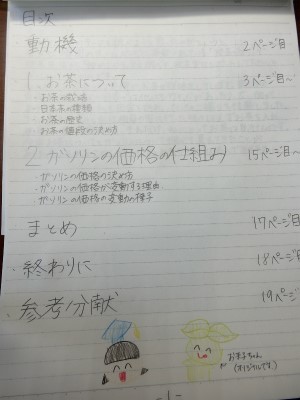 目次
動機 2ページ目
1. お茶について 3ページ目~
・お茶の栽培
・日本茶の種類
・お茶の歴史
・お茶の値段の決め方
2 ガソリンの価格の仕組み 15ページ目~
・ガソリンの価格の決め方
・ガソリンの価格が変動する理由
・ガソリンの価格の変動の様子
まとめ 17ページ目
・終わりに 18ページ目
・参考文献 19ページ目
お茶子ちゃん
(オリジナルです。)
-1-